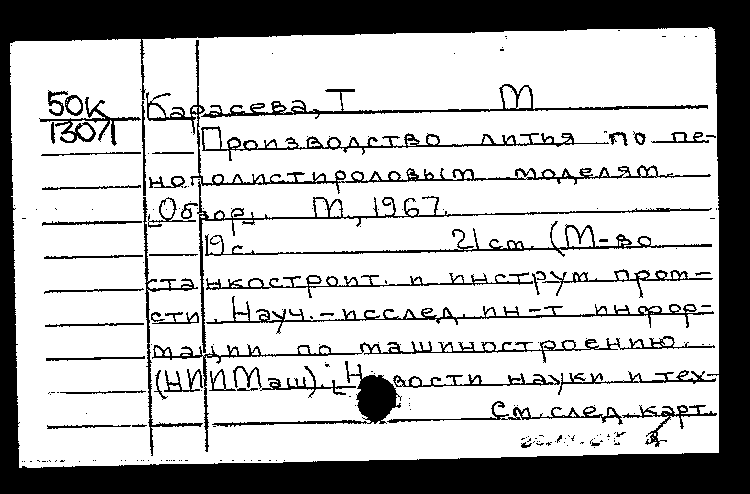 50К Карасева, Т М
1307 Производство литья по пе-
нополистироловым моделям.
[Обзор]. М., 1967.
19 с. 21 см. (М-во
станкостроит. и инструм. пром-
сти. Науч.-исслед. ин-т инфор-
мации по машиностроению.
(НИИМаш). [Новости науки и тех-
См. след. карт.